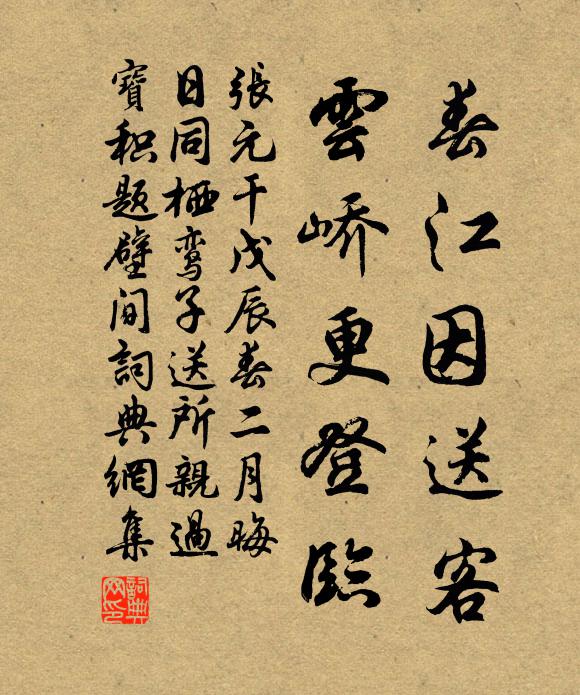 春江因送客
雲峤更登臨
張元干戊辰春二月晦
日同栖鸾子送所親過
寶积题壁间詞典網集
詞典
网印